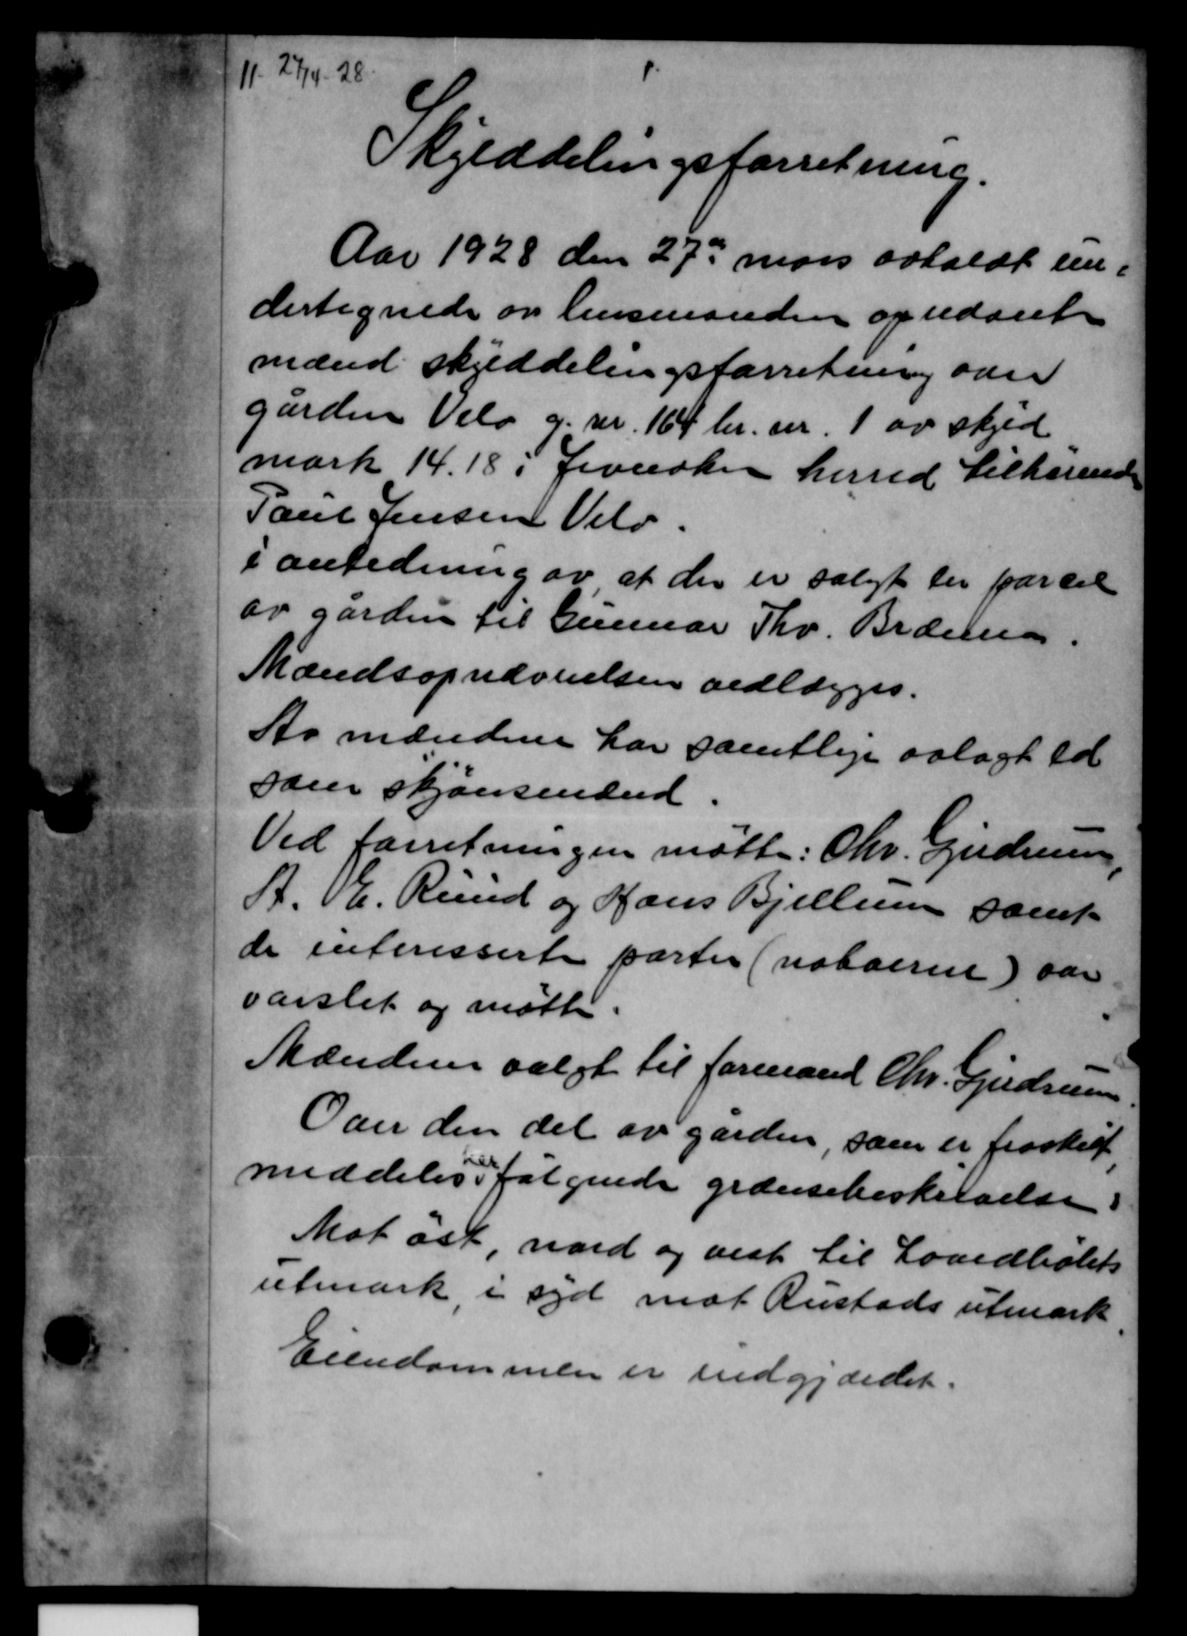 11. 27/4-28.
Skylddelingsforretning.
Aar 1928 den 27de mars avholdt un-
dertegnede av lensmanden opnedavnte
mænd skylddelingsforretning over
gården Velo g. nr. 164 br. nr. 1 av skyld
mark 14.18 i Jevnaker herred tilhørende
Paul Jensen Velo.
i anledning av, at der er solgt en parcel
av gården til Gunnar Thv. Bræmen.
Mændsopnævnelsen vedlægges.
Av mændene har samtlige avlagt ed
som skjønsmænd.
Ved forretningen møtte: Chr. Gjudrum,
A. E. Ruud og Hans Bjellum samt
de interesserte parter (naboerne) var
varslet og møtte.
Mændene valgt til formand Chr. Gjudrum.
Over den del av gården, som er fraskilt,
meddeles her følgende grænsebeskrivelse:
Mot øst, nord og vest til Loverdbølets
utmark, i syd mot Rustads utmark.
Eiendommen er indgjærdet.